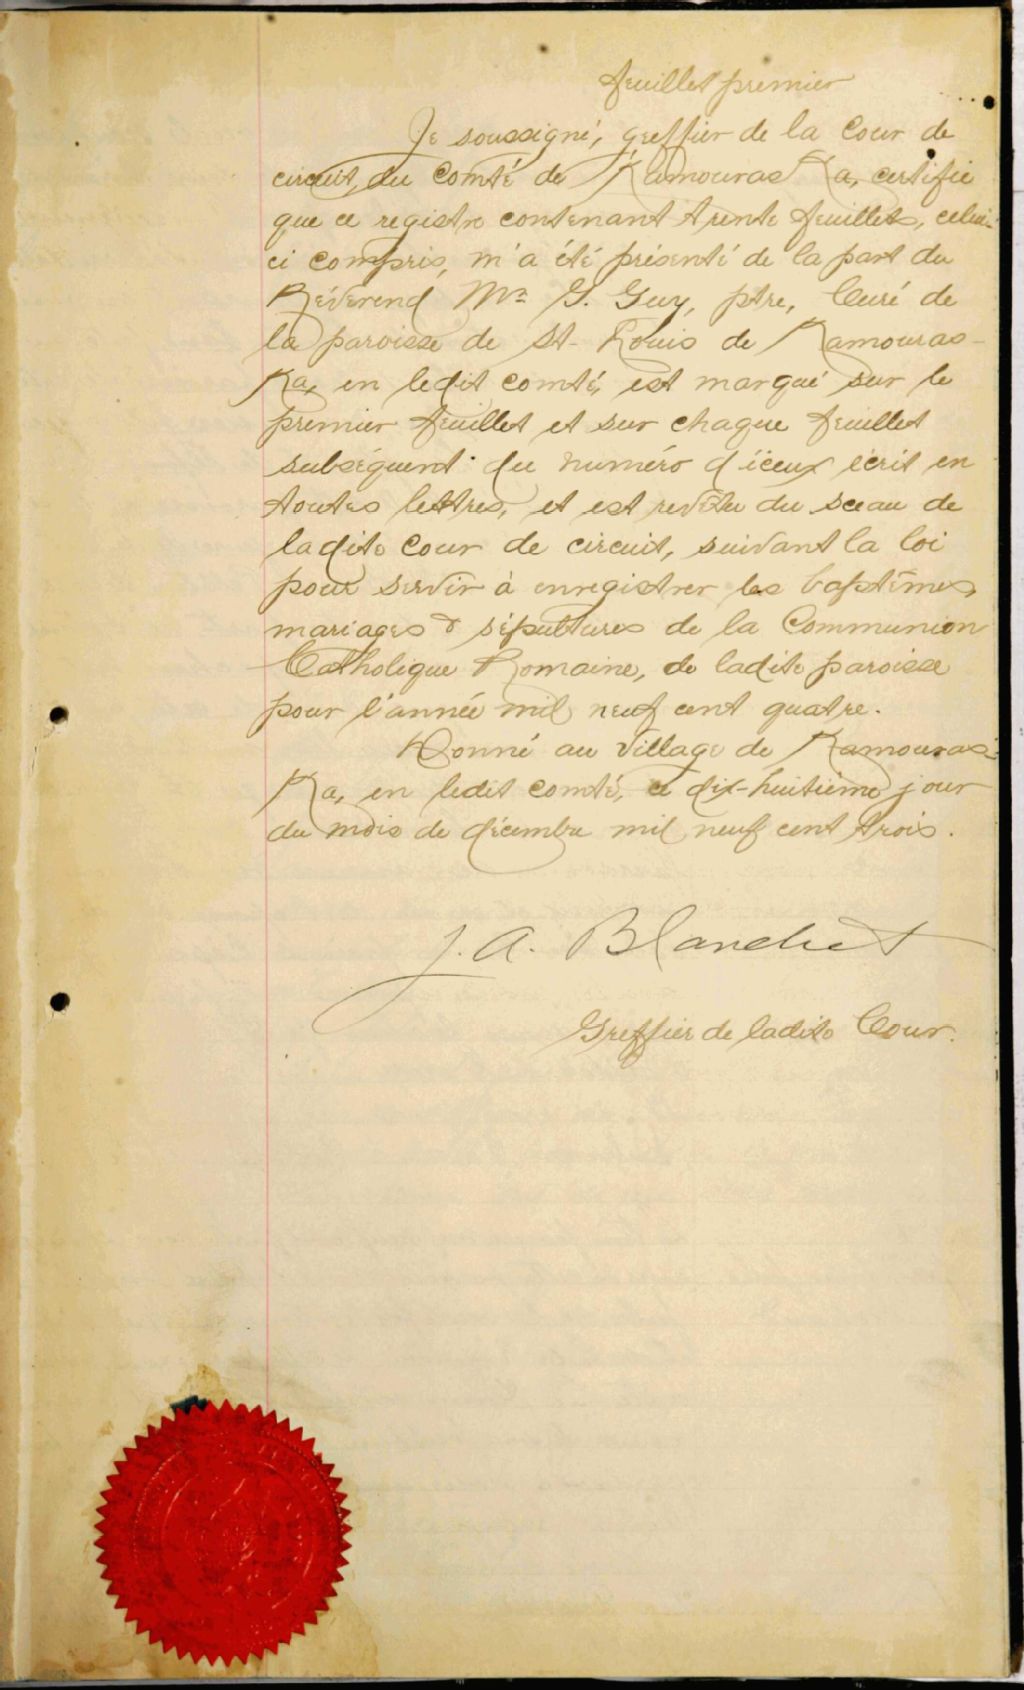 feuillet premier
Je soussigné, greffier de la Cour de
circuit, du Comté de Kamouraska, certifie
que ce registre contenant trente feuillets, celui-
ci compris, m'a été présenté de la part du
Révérend Mr. G. Guy, ptre, Curé de
la paroisse de St-Louis de Kamouras-
Ka, en ledit comté, est marqué sur le
premier feuillet et sur chaque feuillet
subséquent du numéro d'iceux écrit en
toutes lettres, et est revêtu du sceau de
ladite Cour de circuit, suivant la loi
pour servir à enregistrer les baptêmes,
mariages & sépultures de la Communion
Catholique Romaine, de ladite paroisse
pour l'année mil neuf cent quatre.
Donné au Village de Kamouras-
Ka, en ledit comté, ce dix-huitième jour
du mois de décembre mil neuf cent trois.
J. A. Blanchet
Greffier de ladite Cour.